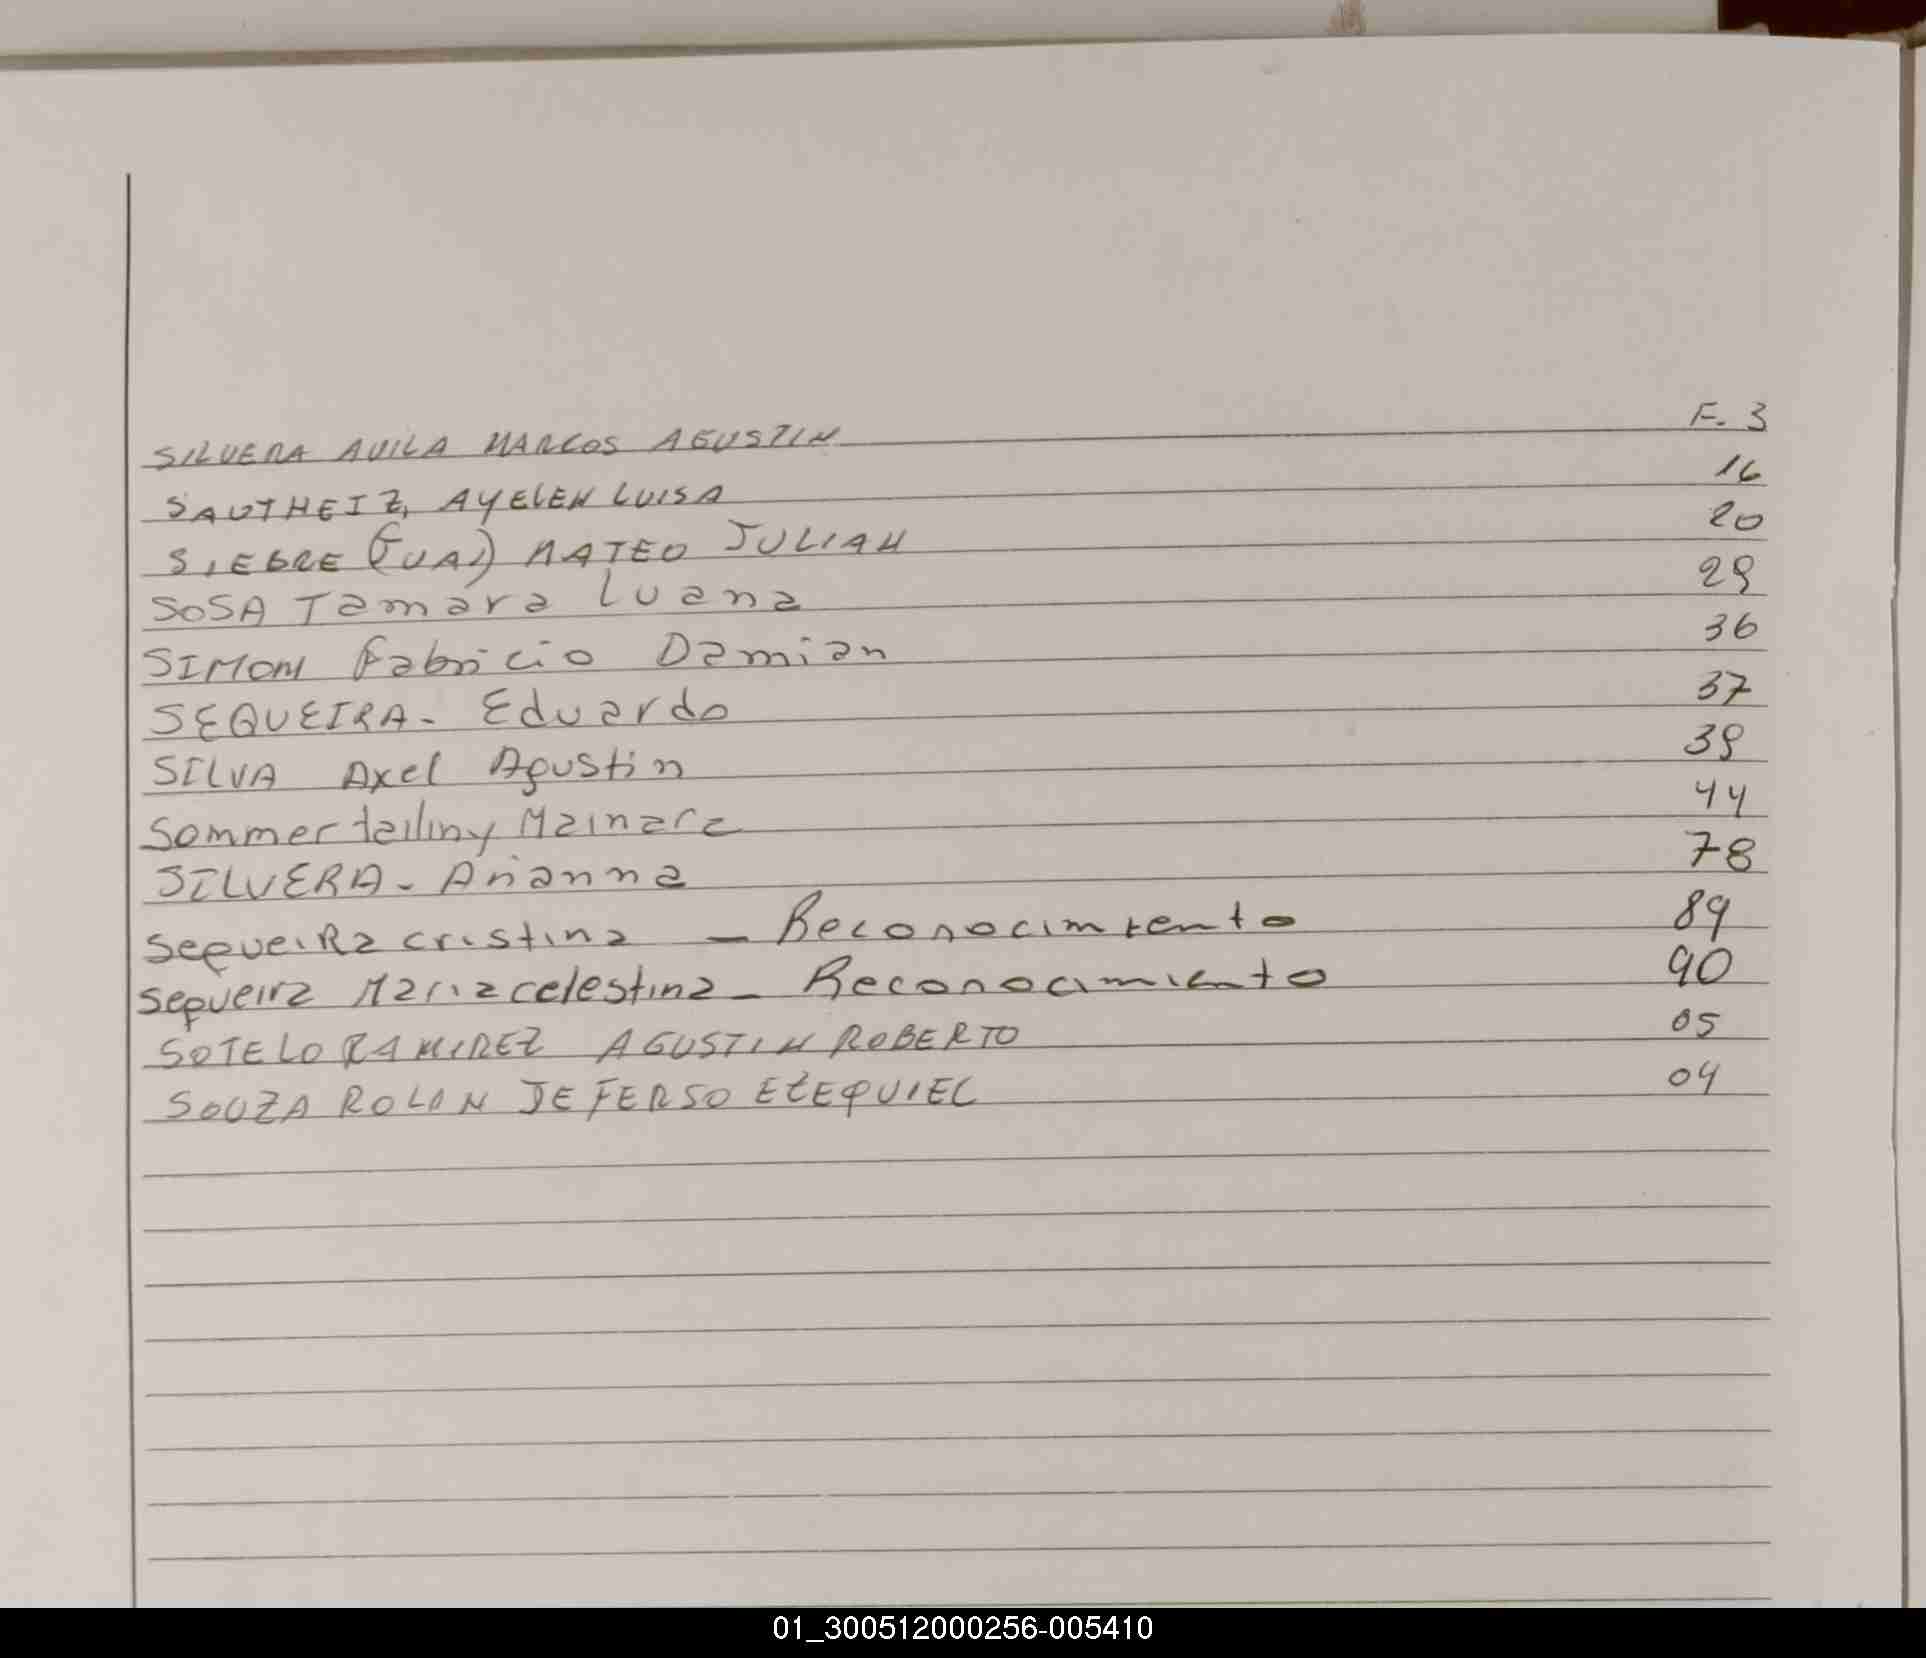 SILVERA AVILA MARCOS AGUSTIN F. 3
SAUTHEIZ, AYELEN LUISA 16
SIEBRE (JUAI) MATEO JULIAN 20
SOSA Tamara Luana 29
SIMON Fabricio Damian 36
SEQUEIRA - Eduardo 37
SILVA Axel Agustin 39
Sommer tailiny Mainara 44
SILVERA - Arianna 78
SequeiRa cristina - Reconocimiento 89
Sequeira Maria celestina - Reconocimiento 90
SOTELO RAMIREZ AGUSTIN ROBERTO 05
SOUZA ROLON JEFERSO EZEQUIEL 04
01_300512000256-005410